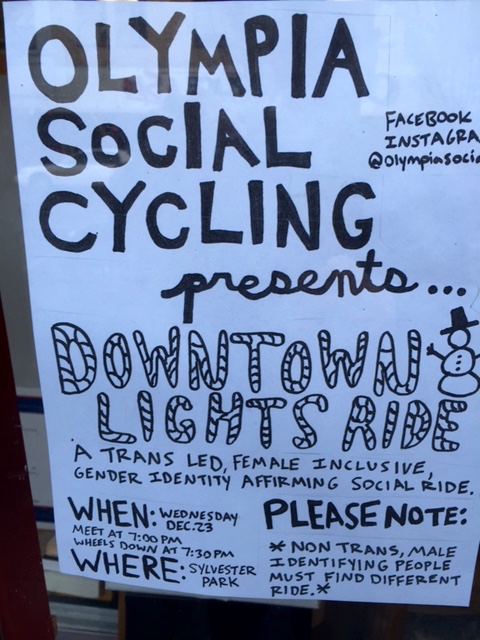 OLYMPIA
SOCIAL
CYCLING
FACEBOOK
INSTAGRA
@olympiasocia
presents...
DOWNTOWN
LIGHTS RIDE
A TRANS LED, FEMALE INCLUSIVE,
GENDER IDENTITY AFFIRMING SOCIAL RIDE.
WHEN: WEDNESDAY
DEC. 23
MEET AT 7:00 PM
WHEELS DOWN AT 7:30 PM
WHERE: SYLVESTER
PARK
PLEASE NOTE:
* NON TRANS, MALE
IDENTIFYING PEOPLE
MUST FIND DIFFERENT
RIDE.*